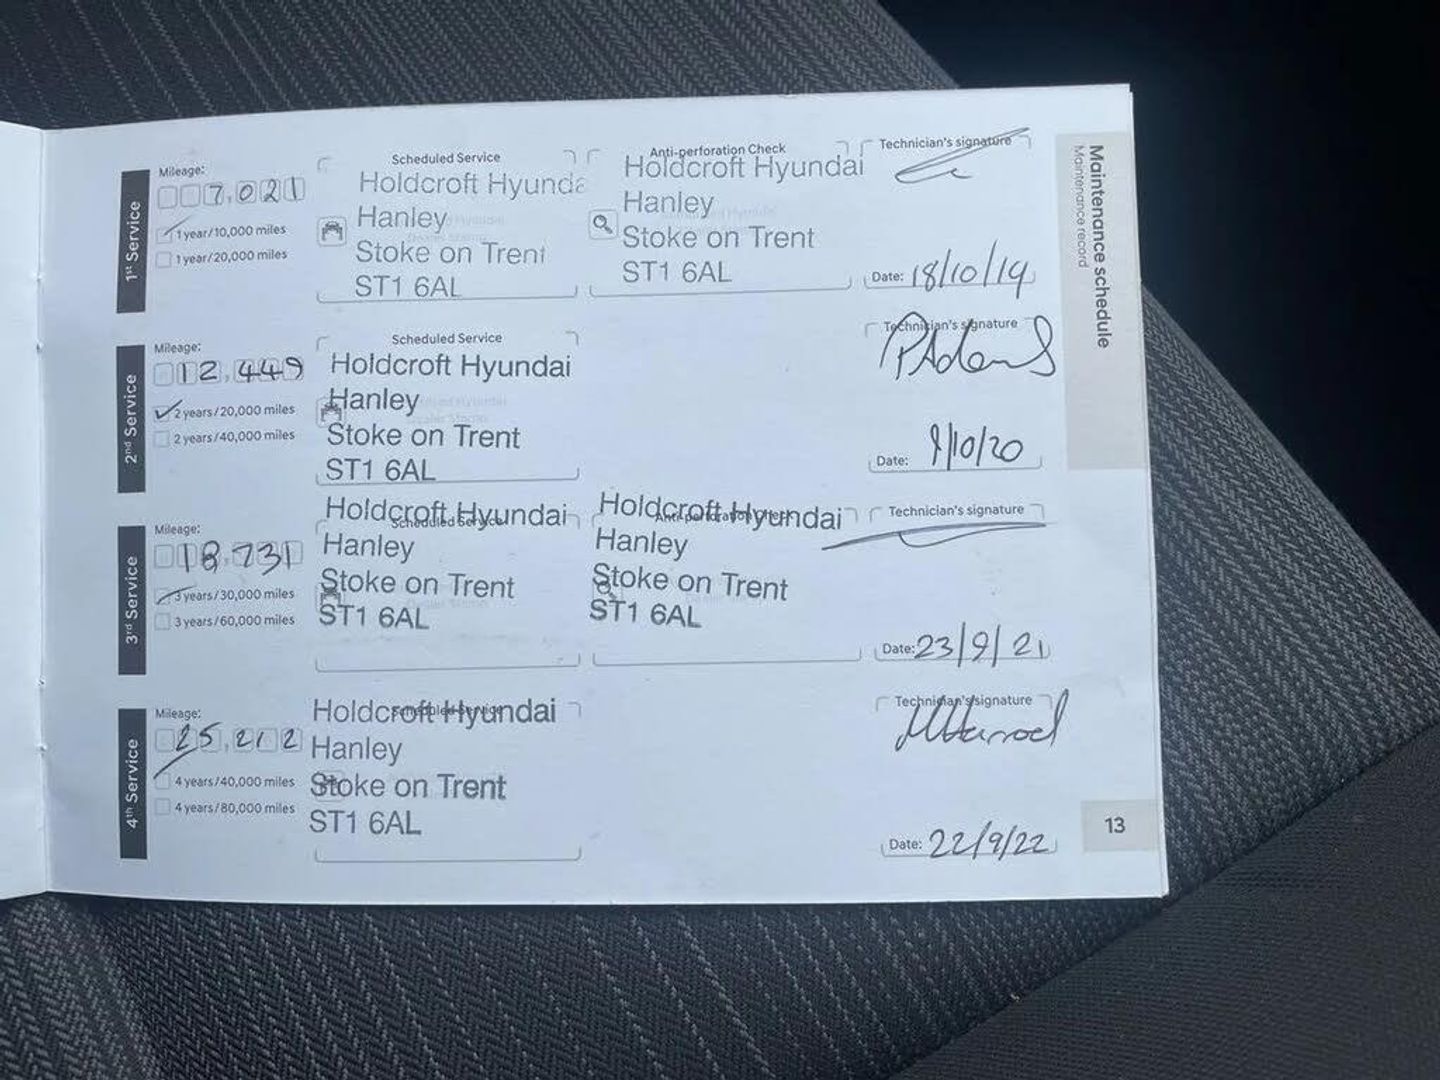 Maintenance schedule
Maintenance record
1st Service
Mileage:
7,021
1 year/10,000 miles
1 year/20,000 miles
Scheduled Service
Holdcroft Hyunda
Hanley
Stoke on Trent
ST1 6AL
Anti-perforation Check
Holdcroft Hyundai
Hanley
Stoke on Trent
ST1 6AL
Technician's signature
Date: 18/10/19
2nd Service
Mileage:
12,449
2 years/20,000 miles
2 years/40,000 miles
Scheduled Service
Holdcroft Hyundai
Hanley
Stoke on Trent
ST1 6AL
Technician's signature
PAdams
Date: 9/10/20
3rd Service
Mileage:
18,731
3 years/30,000 miles
3 years/60,000 miles
Scheduled Service
Holdcroft Hyundai
Hanley
Stoke on Trent
ST1 6AL
Anti-perforation Check
Holdcroft Hyundai
Hanley
Stoke on Trent
ST1 6AL
Technician's signature
Date: 23/9/21
4th Service
Mileage:
25,212
4 years/40,000 miles
4 years/80,000 miles
Scheduled Service
Holdcroft Hyundai
Hanley
Stoke on Trent
ST1 6AL
Technician's signature
Date: 22/9/22
13